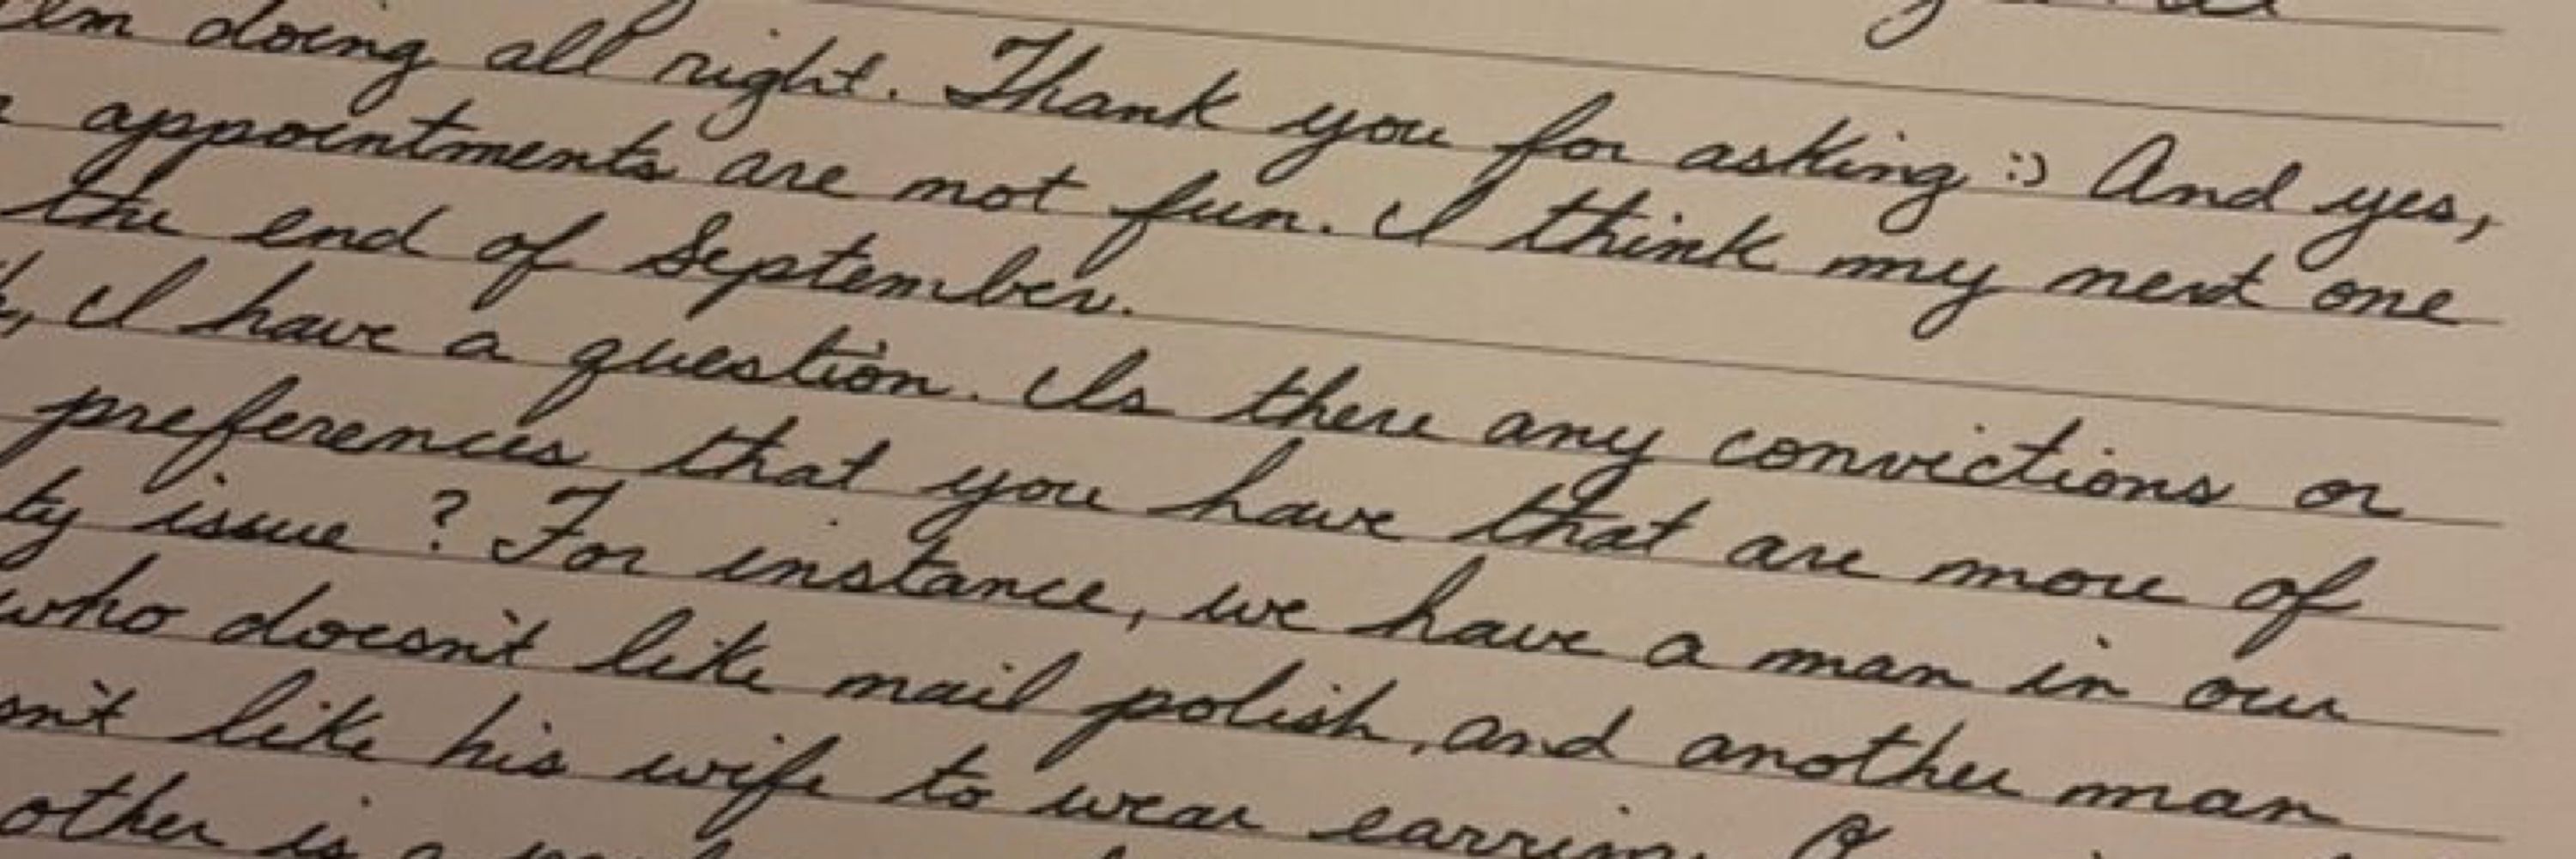 doing all right. Thank you for asking :) And yes,
appointments are not fun. I think my next one
the end of September.
I have a question. Is there any convictions or
preferences that you have that are more of
ty issue? For instance, we have a man in our
who doesn't like nail polish, and another man
sn't like his wife to wear
other is a